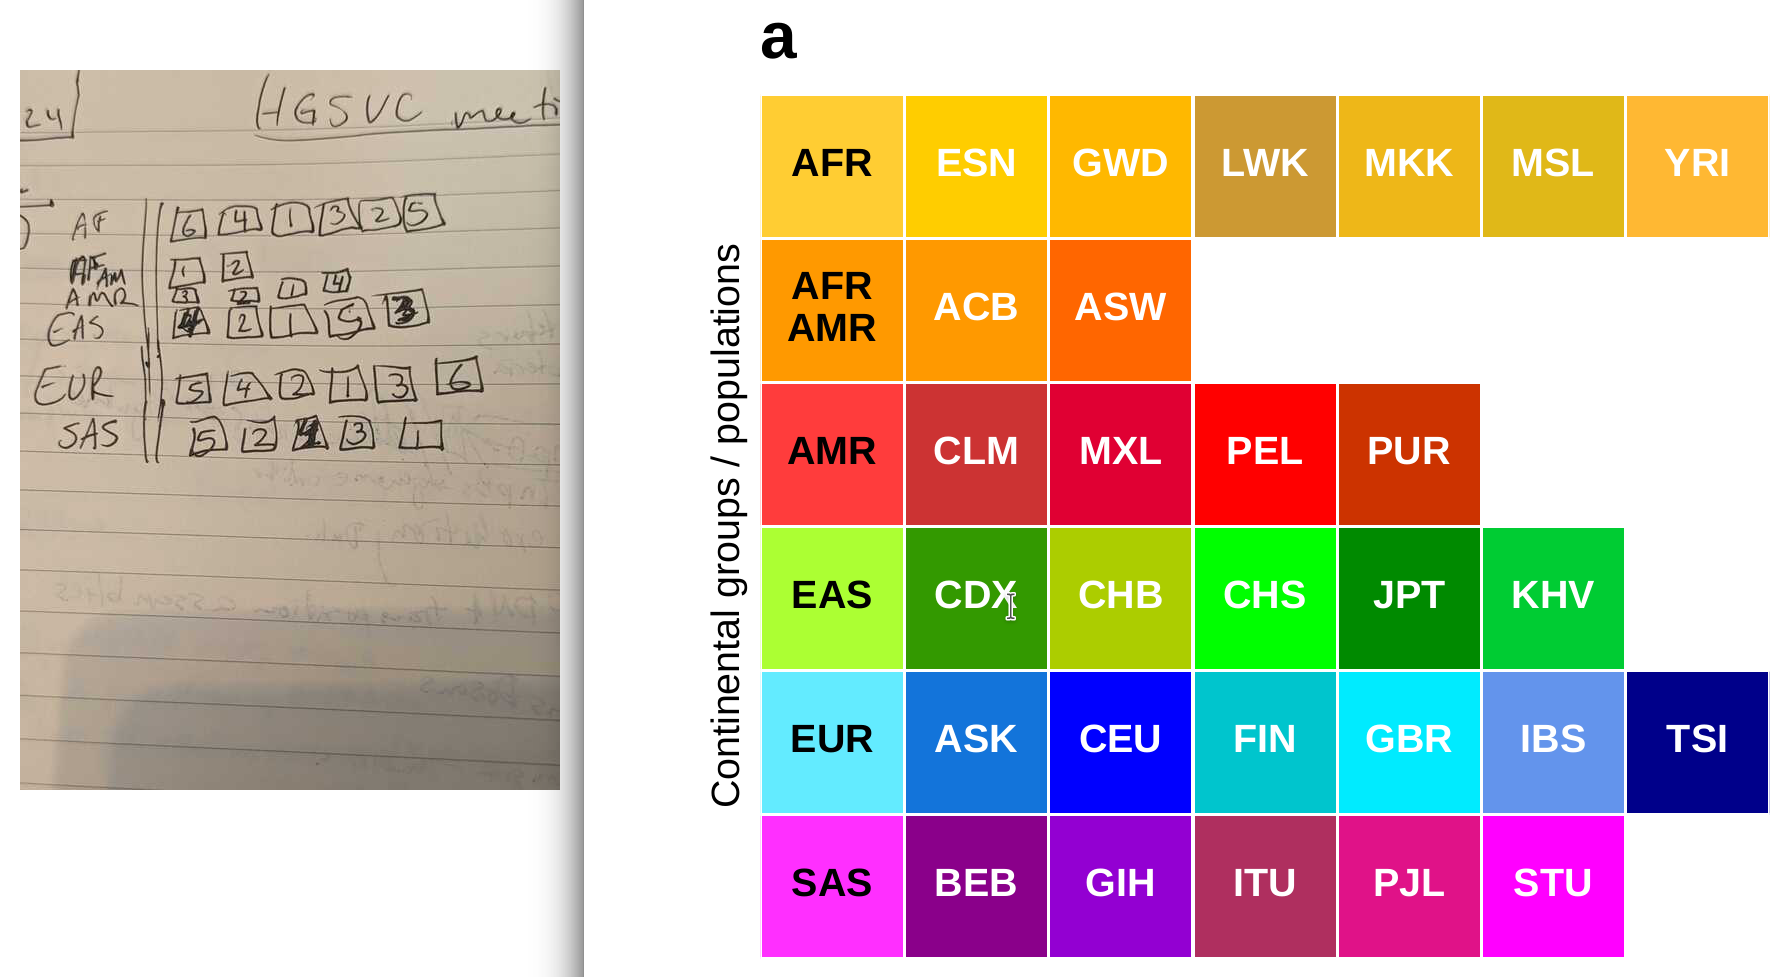 24
HGSVC meeti
AF 6 4 1 3 2 5
AFAM 1 2
AMR 3 2 1 4
EAS 4 2 1 5 3
EUR 5 4 2 1 3 6
SAS 5 2 4 3 1
a
Continental groups / populations
AFR ESN GWD LWK MKK MSL YRI
AFR AMR ACB ASW
AMR CLM MXL PEL PUR
EAS CDX CHB CHS JPT KHV
EUR ASK CEU FIN GBR IBS TSI
SAS BEB GIH ITU PJL STU